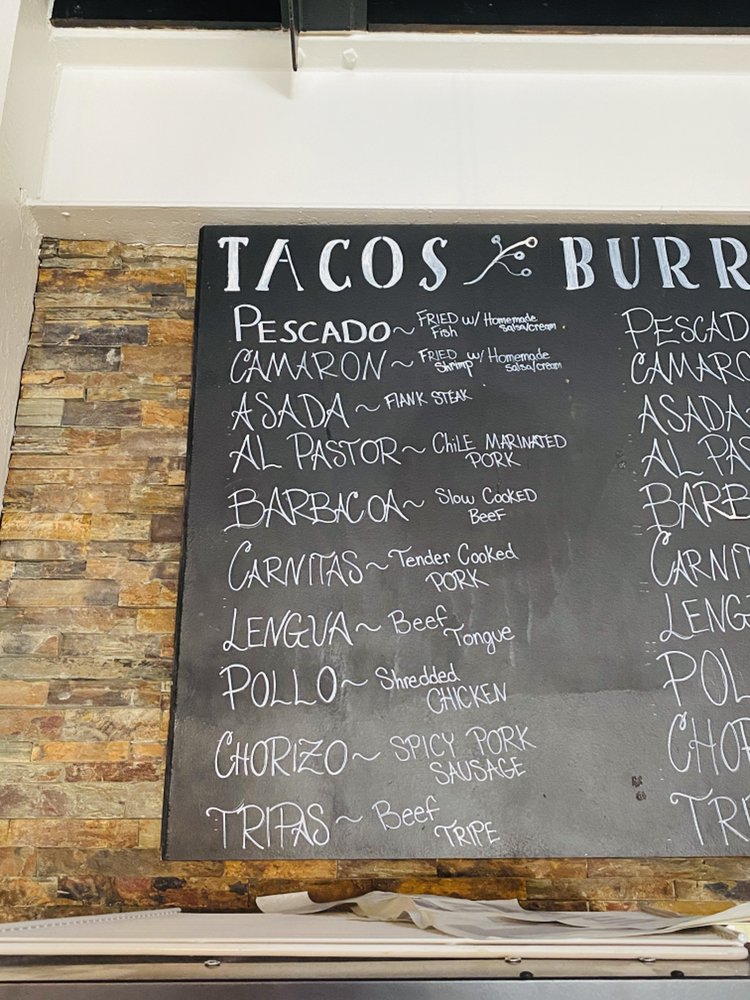 TACOS BURR
PESCADO~ FRIED w/ Homemade
Fish salsa/cream
CAMARON~ FRIED w/ Homemade
Shrimp salsa/cream
ASADA~ FlANK STEAK
AL PASTOR~ CHiLE MARINATED
PORK
BARBACOA~ Slow COOKED
BeeF
CARNITAS~ Tender Cooked
PORK
LENGUA~ Beef
Tongue
POLLO~ Shredded
CHICKEN
CHORIZO~ SPICY PORK
SAUSAGE
TRIPAS~ Beef
TRIPE
PESCAD
CAMARO
ASADA
AL PAS
BARB
CARNIT
LENG
POL
CHOR
TRI